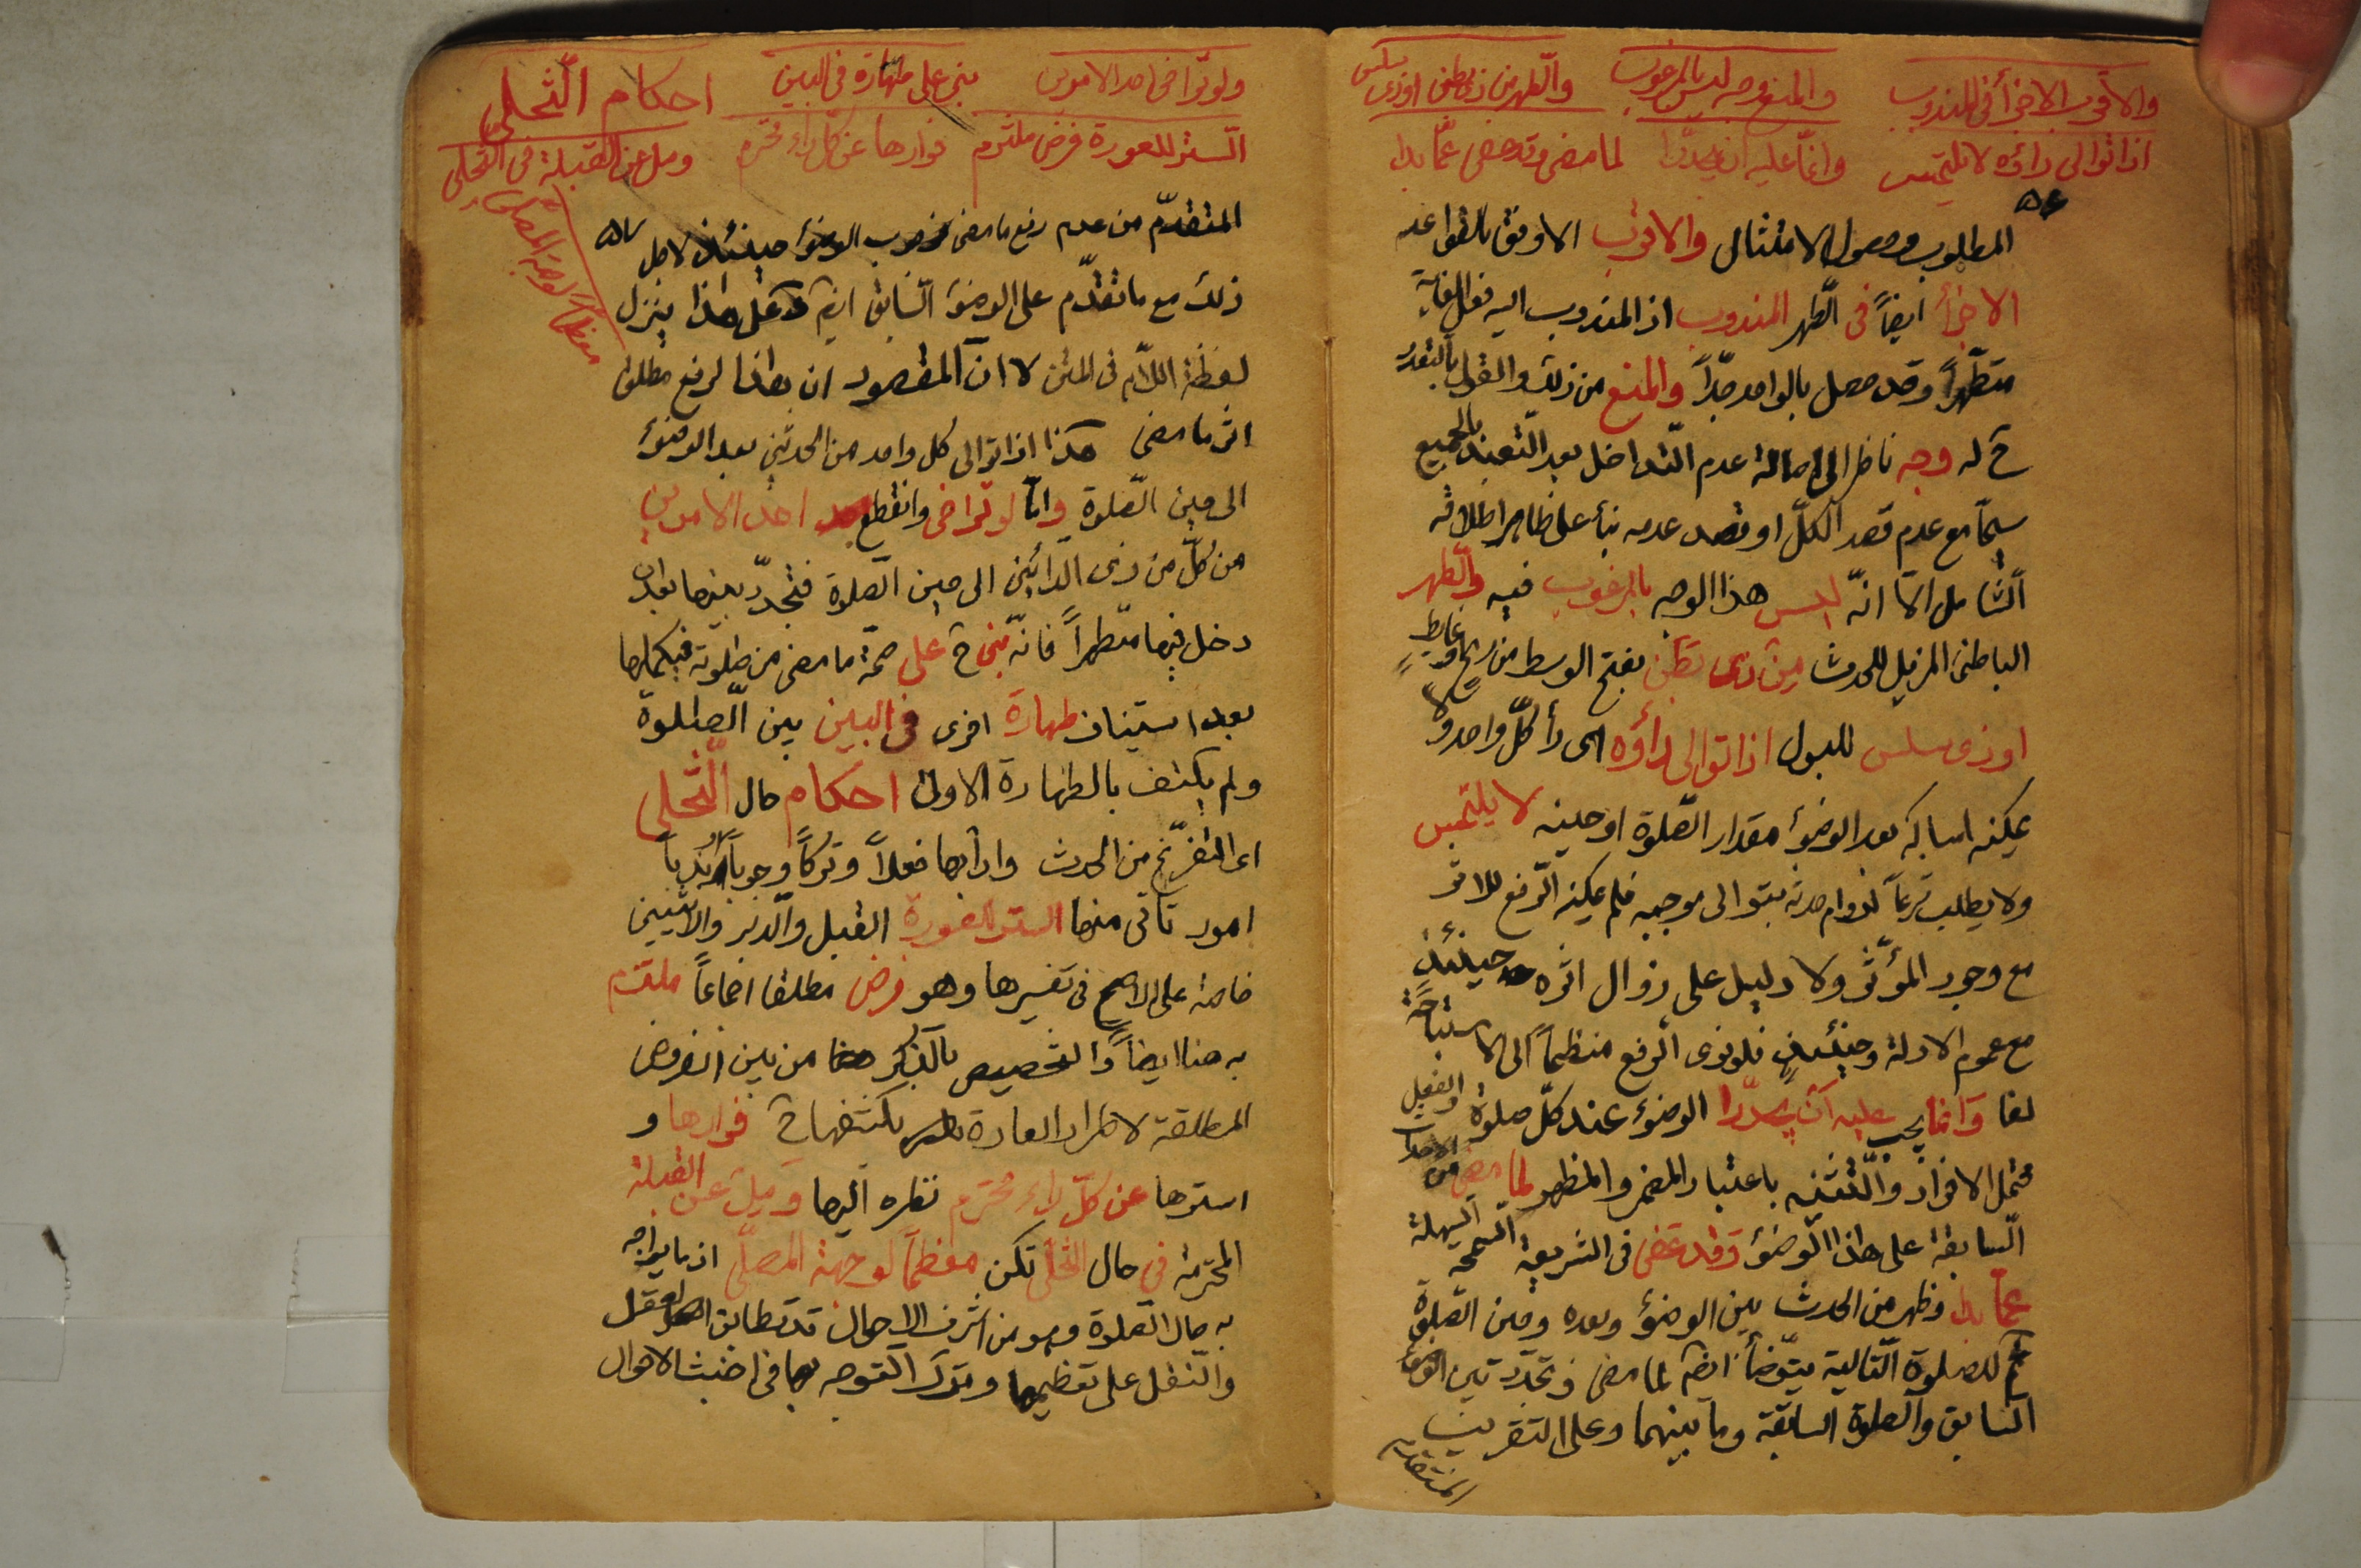 والاقرب الاجزأ فى المندوب والمنع وجه ليس بالمرغوب والطهر من ذى بطن او ذى سلس
اذا توالى داؤه لا يلتمس وانما عليه ان يجددا لما مضى وقد عفى عما بدا
٥٦
المطلوب وحصول الامتثال والاقرب الاوفق بالقواعد
الاجزأ ايضاً فى الطهر المندوب اذ المندوب اليه فعل الغاية
متطهراً وقد حصل بالواحد جداً والمنع من ذلك والقول بالتعدد
ح له وجه ناظر الى اصالة عدم التداخل بعد التعبد بالجميع
سيما مع عدم قصد الكل او قصد عدمه بناء على ظاهر اطلاقه
الشامل الا انه ليس هذا الوجه بالمرغوب فيه والطهر
الباطنى المزيل للحدث من ذى بطن بفتح الوسط من ريح او غايط
او ذى سلس للبول اذا توالى داؤه اى داء كل واحد ولا
يمكنه امساكه بعد الوضوء مقدار الصلوة او حينه لا يلتمس
ولا يطلب شرعاً لدوام حدثه بتوالى موجبه فلم يمكنه الرفع للاثر
مع وجود المؤثر ولا دليل على زوال اثره حينئذ
مع عموم الادلة وحينئذ فلو نوى الرفع منظماً الى الاستباحة
لغا وانما يجب عليه ان يجددا الوضوء عند كل صلوة والفعل
محتمل الافراد والتثنية باعتبار المضمر والمظهر لما مضى من الاحداث
السابقة على هذا الوضوء وقد عفى فى الشريعة السمحة السهلة
عما بدا وظهر من الحدث بين الوضوء وبعده وحين الصلوة
ثم للصلوة التالية يتوضأ ايضاً لما مضى وتجدد بين الوضوء
السابق والصلوة السابقة وما بينهما وعلى التقريب
المتقدم
ولو تراخى احد الامرين بنى على طهارة فى البين احكام التخلى
الستر للعورة فرض ملتزم فوارها عن كل راء محترم ومل عن القبلة فى التخلى
معظماً لوجهة المصلى
٥٧
المتقدم من عدم رفع ما مضى فوجب الوضوء حينئذ لاجل
ذلك مع ما تقدم على الوضوء السابق ايضاً وعلى هذا ينزل
لفظة اللام فى المتن لا ان المقصود ان هذا لرفع مطلق
اثر ما مضى هكذا اذا توالى كل واحد من الحدثين بعد الوضوء
الى حين الصلوة واما لو تراخى وانقطع احد الامرين
من كل من ذى الدائين الى حين الصلوة فتجدد بينها بعد ان
دخل فيها متطهراً فانه بنى ح على صحة ما مضى من صلوته فيكملها
بعد استيناف طهارة اخرى فى البين بين الصلوة
ولم يكتف بالطهارة الاولى احكام حال التخلى
اى التفرغ من الحدث وادابها فعلاً وتركاً وجوباً وندباً
امور تاتى منها الستر للعورة القبل والدبر والانثيين
خاصة على الاصح فى تفسيرها وهو فرض مطلقا اجماعاً ملتزم
به هنا ايضاً والتخصيص بالذكر هنا من بين الفروض
المطلقة لاطراد العادة بكشفها ح فوارها و
استرها عن كل راء محترم نظره اليها ومل عن القبلة
المحترمة فى حال التخلى تكن معظماً لوجهة المصلى اذ ما يواجه
به حال الصلوة وهو من اشرف الاحوال قد تطابق العقل
والنقل على تعظيمها وترك التوجه بها فى اخبث الاحوال